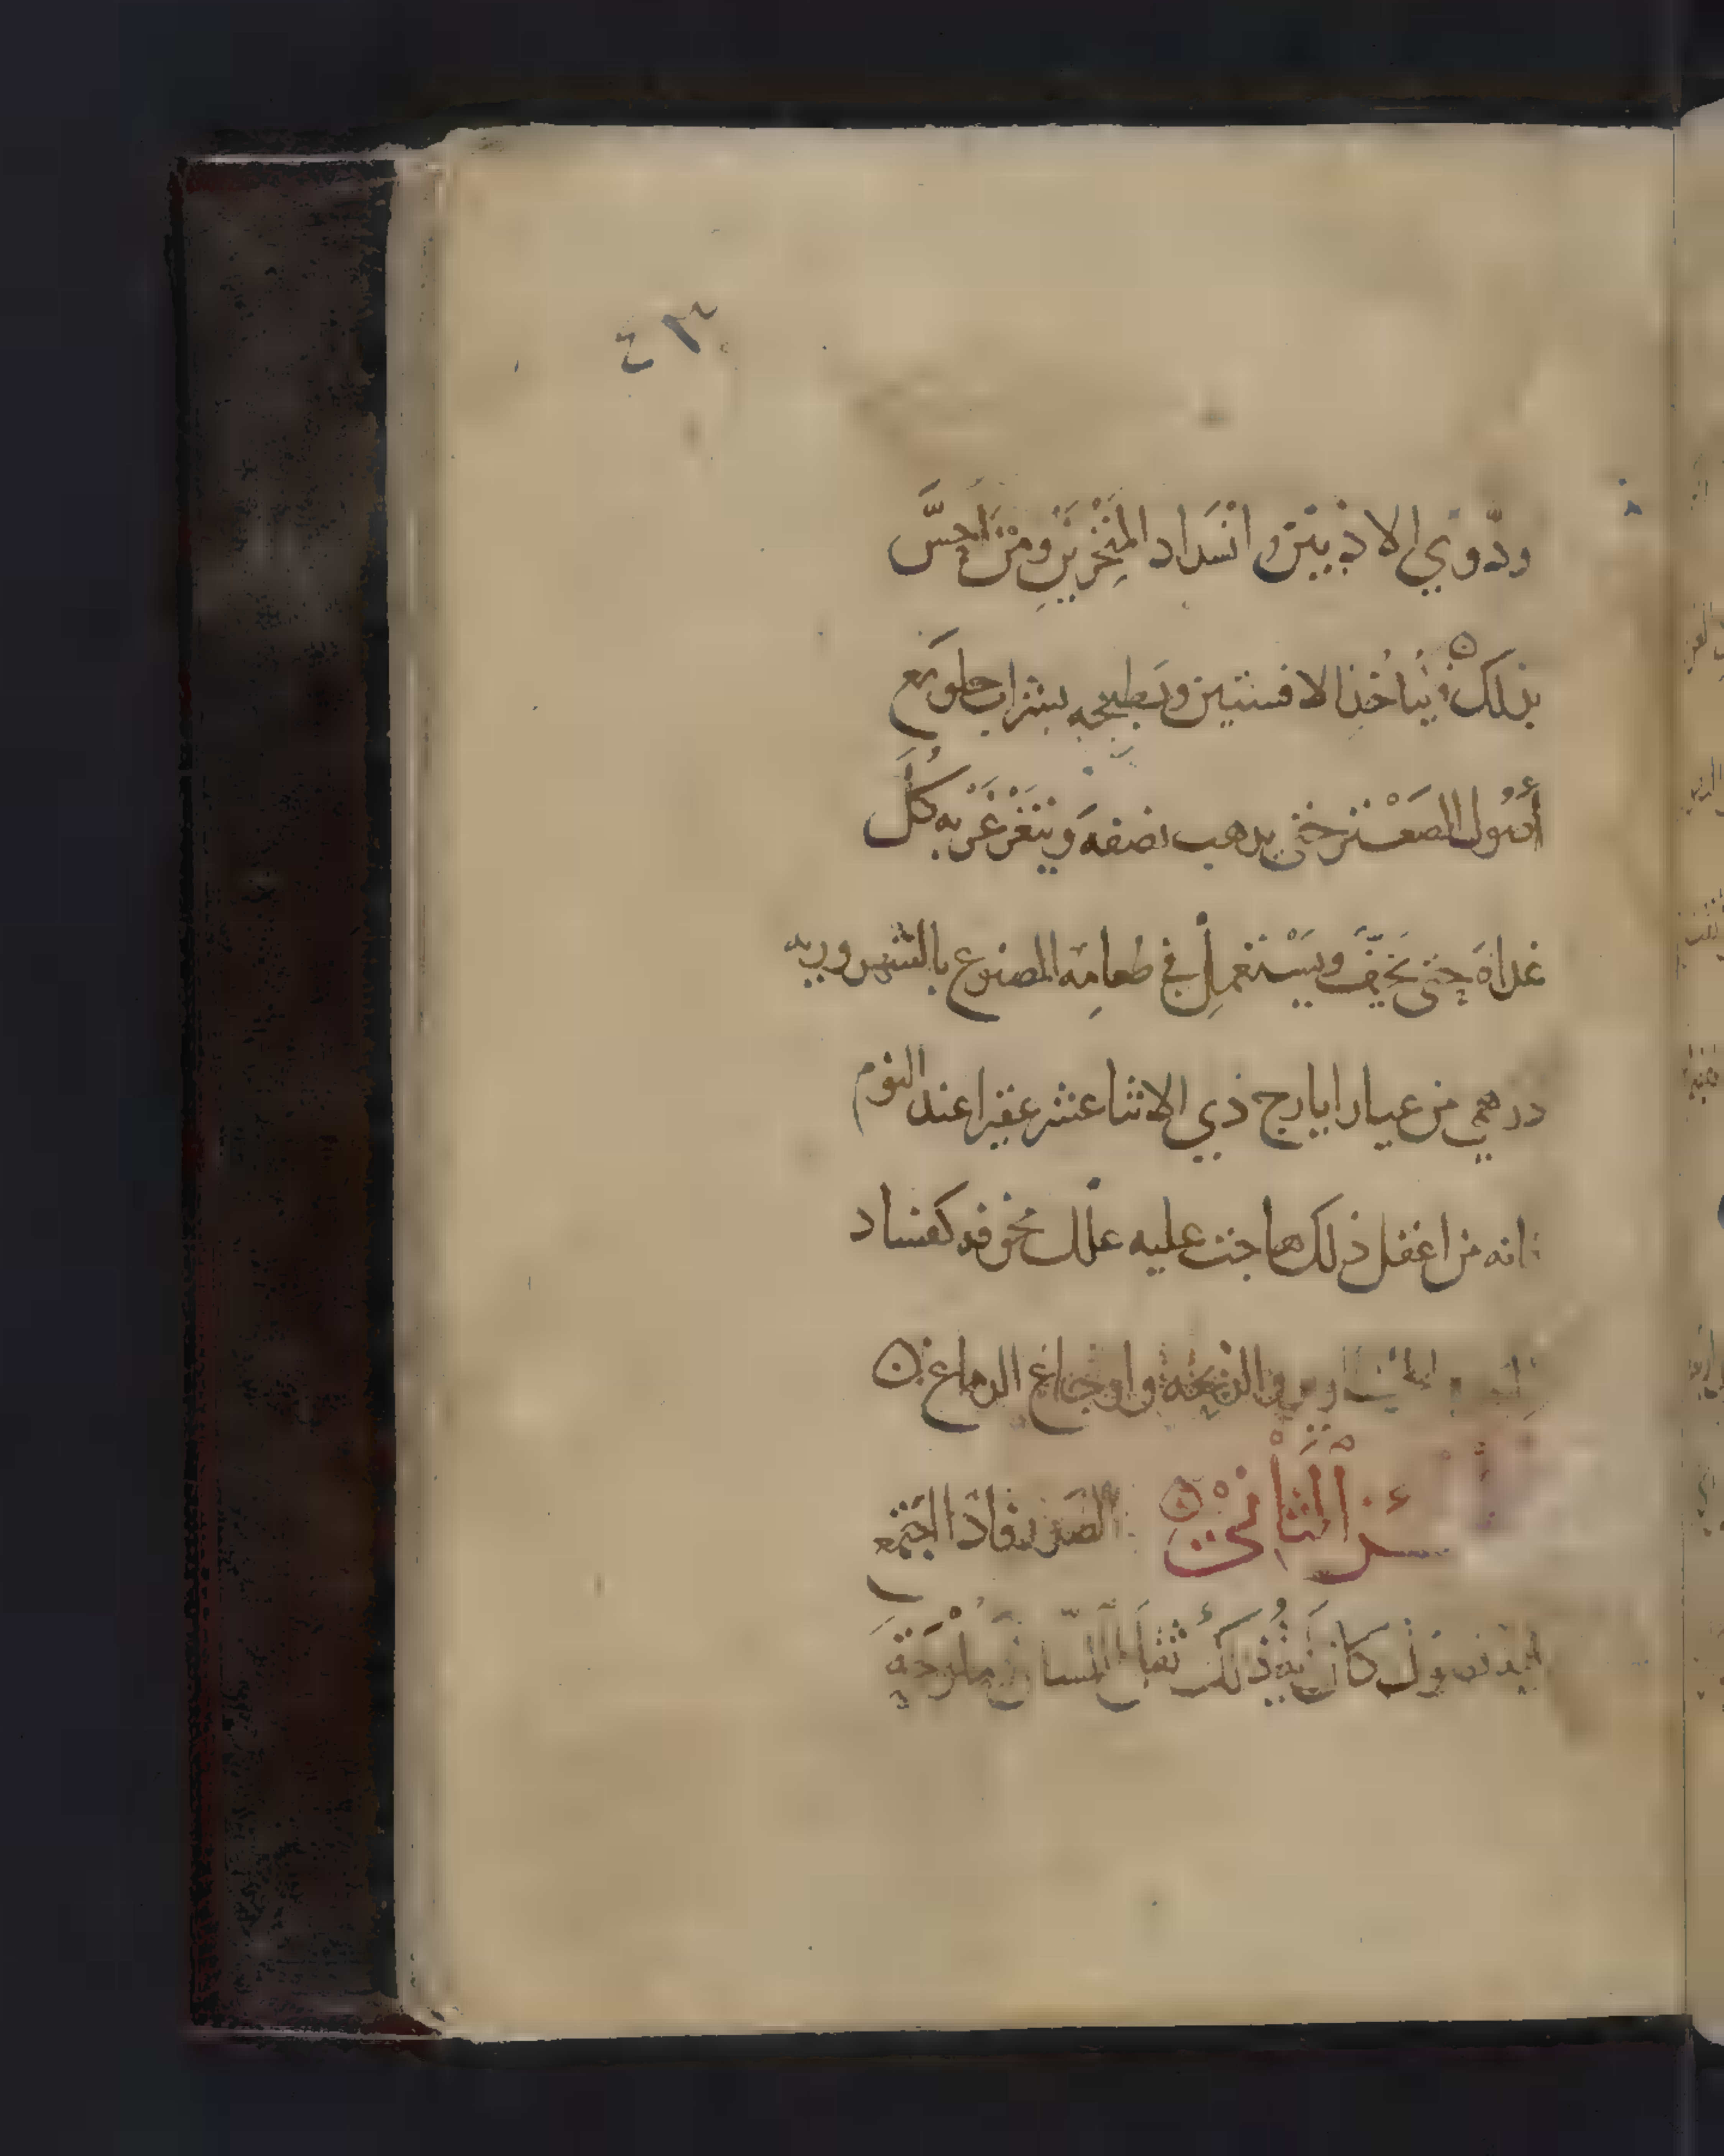 ودوّي الاذنين وانسَداد المِنْخَرَيْنِ ومَن اَحسَّ
بذلك فيَاخُذ الافسنتين ويَطبخه بشراب حلو مع
أصُول الصَعْتر حتى يذهب نصفه وَيتَغَرْغَرْ به كُلَّ
غداة حتى يَخِفَّ ويَسْتعمِل في طعامِه المصنوع
درهمي من عيار ايارج ذي الاثنا عشر عقيرا عند النوم
فانه من اغفل ذلك هاجت عليه علل مخوفه كفساد
والذبحة واوجاع الدماع
الثَّاني الصَدر فاذا اجتمع
كانَ آية ذلكَ ثقل اللسان وملوحَة